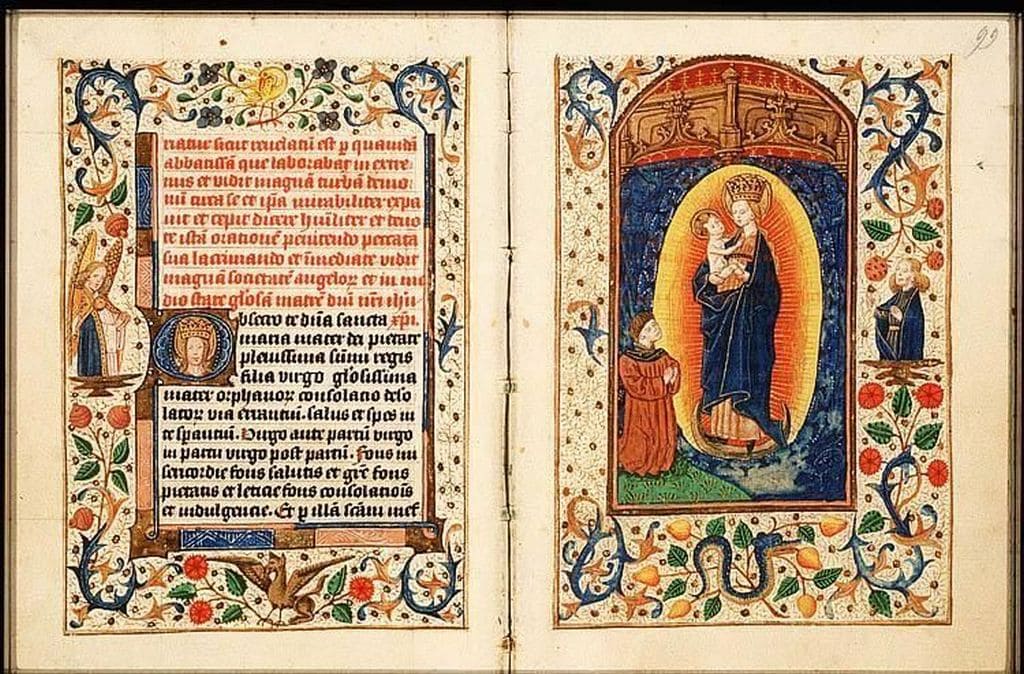 riatur sicut revelatū est p quamdā
abbatissā que laborabat in extre
mis et vidit magnā turbā demo
nū circa se et ipa mirabiliter expa
uit et cepit dicere hūiliter et devo
te istā orationē penitendo peccata
sua lacrimando et īmediate vidit
magnā societatē angelor et in me
dio stare glosā matrē dūi nr̄i ihū
Obsecro te dn̄a sancta xp̄i.
maria mater dei pietate
plenissima sūmi regis
filia virgo glosissima
mater orphanor consolacio deso
lator via errantiū. salus et spes in
te sperantiū. Virgo ante partū virgo
in partu virgo post partū. fons mi
sericordie fons salutis et gr̄e fons
pietatis et leticie fons consolationis
et indulgencie. Et p illā scāM inef
99